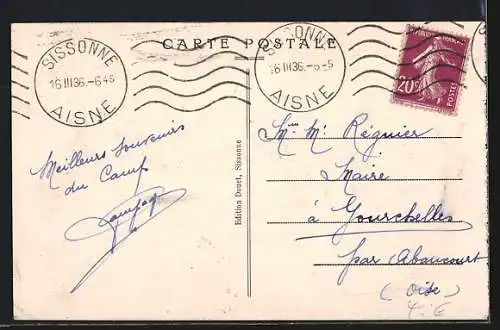 CARTE POSTALE
SISSONNE
16 III 36.-6 45
AISNE
SISSONNE
16 III 36.-6 45
AISNE
REPUBLIQUE FRANCAISE
20c
POSTES
Meilleurs Souvenirs
du Camp
Edition Douet, Sissonne
Mr Régnier
Maire
à Gourchelles
par Abancourt
(Oise)